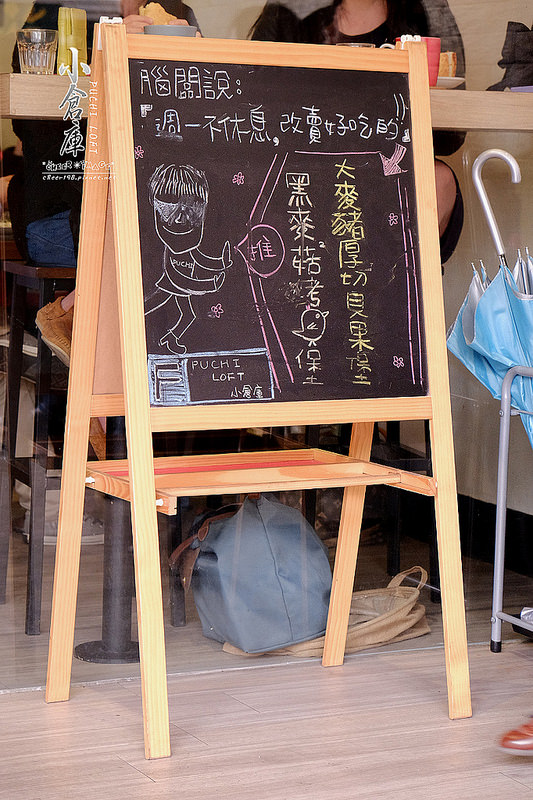 小倉庫
PUCHI LOFT
cheer198.pixnet.net
腦闆說：
『週一不休息，改賣好吃的』
大麥豬厚切貝果堡
推
黑麥菇烤 堡
PUCHI
PUCHI
LOFT
小倉庫